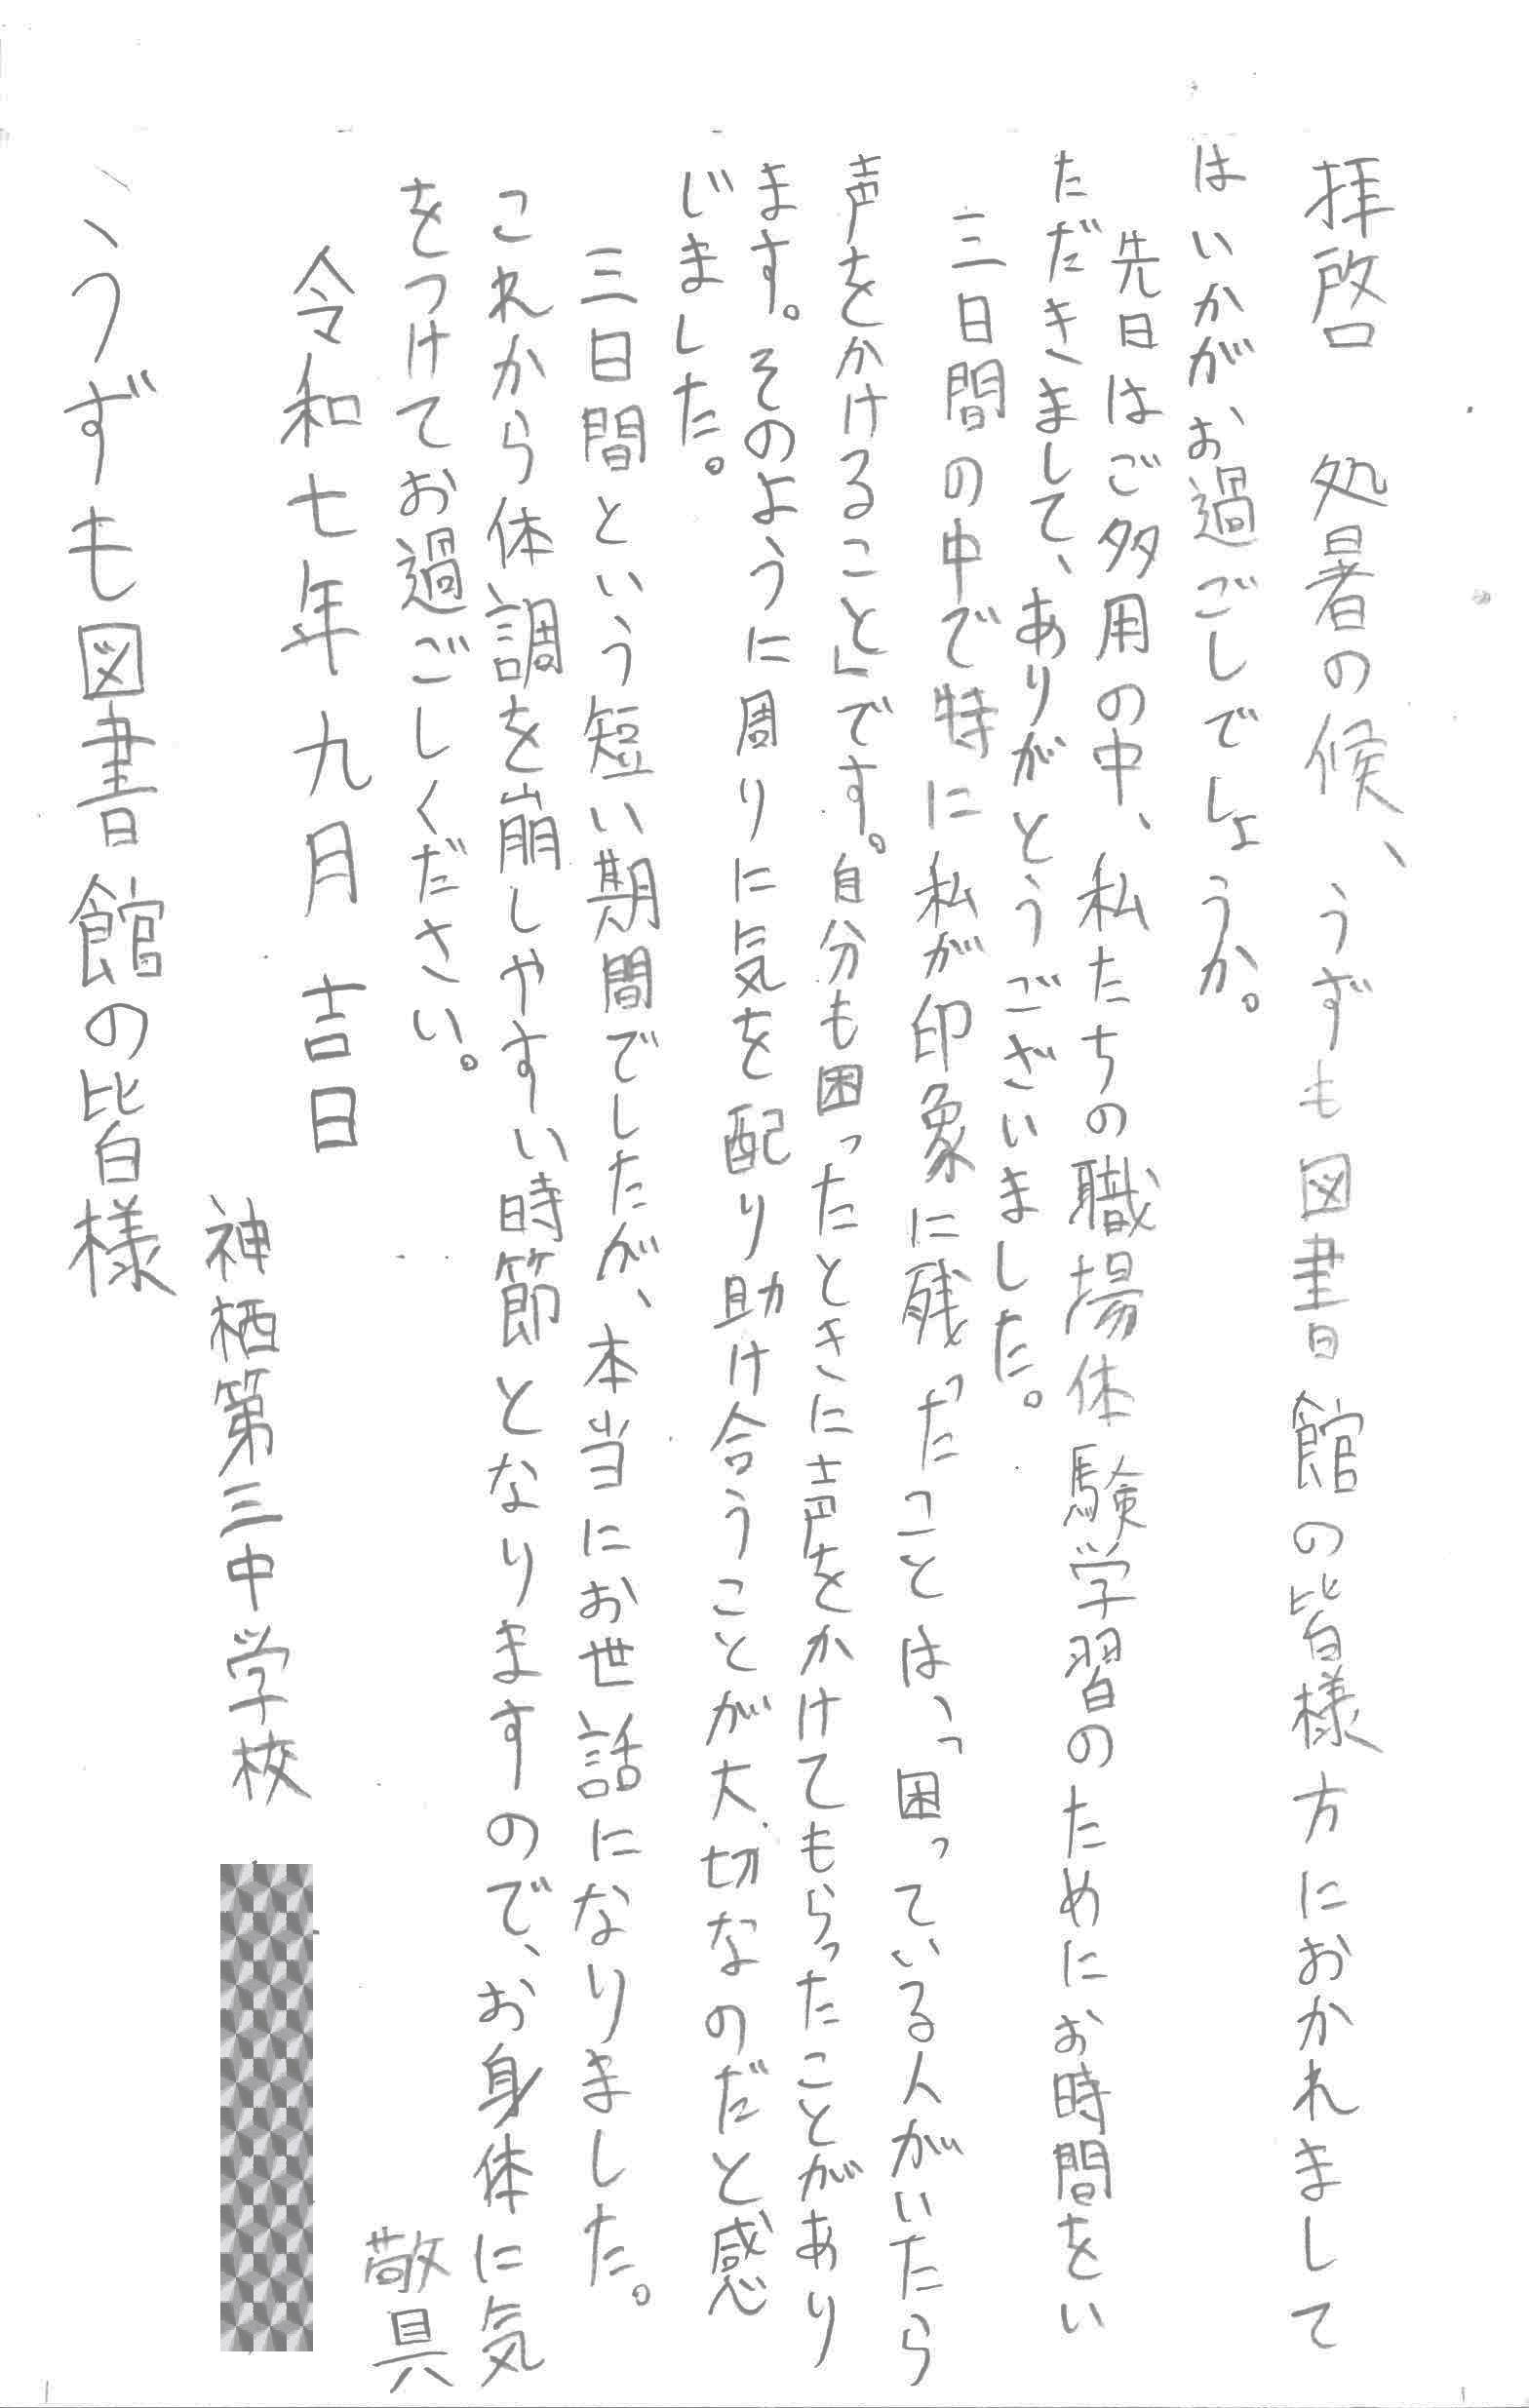 拝啓　処暑の候、うずも図書館の皆様方におかれまして
はいかがお過ごしでしょうか。
先日はご多用の中、私たちの職場体験学習のためにお時間をい
ただきまして、ありがとうございました。
三日間の中で特に私が印象に残ったことは、「困っている人がいたら
声をかけること」です。自分も困ったときに声をかけてもらったことがあり
ます。そのように周りに気を配り助け合うことが大切なのだと感
じました。
三日間という短い期間でしたが、本当にお世話になりました。
これから体調を崩しやすい時節となりますので、お身体に気
をつけてお過ごしください。
敬具
令和七年九月吉日
神栖第三中学校
うずも図書館の皆様